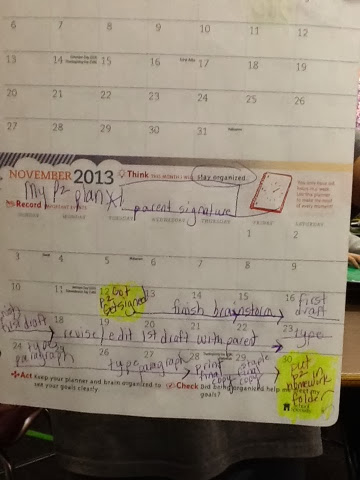 6 7 8 9 10 11 12
13 14 15 16 17 18 19
20 21 22 23 24 25 26
27 28 29 30 31
NOVEMBER 2013
Think THIS MONTH I WILL stay organized.
My P2 plan
Record IMPORTANT EVENTS
parent signature
FRIDAY SATURDAY
1 2
3 4 5 6 7 8 9
10 11 12 13 14 15 16
Got P2 signed
finish brainstorm
first draft
17 18 19 20 21 22 23
first draft
revise/edit 1st draft with parent
type
24 25 26 27 28 29 30
type paragraph
type paragraph
print final copy
staple final copy
put P2 in homework folder
Act Keep your planner and brain organized to set your goals clearly.
Check Did being organized help me meet my goals?